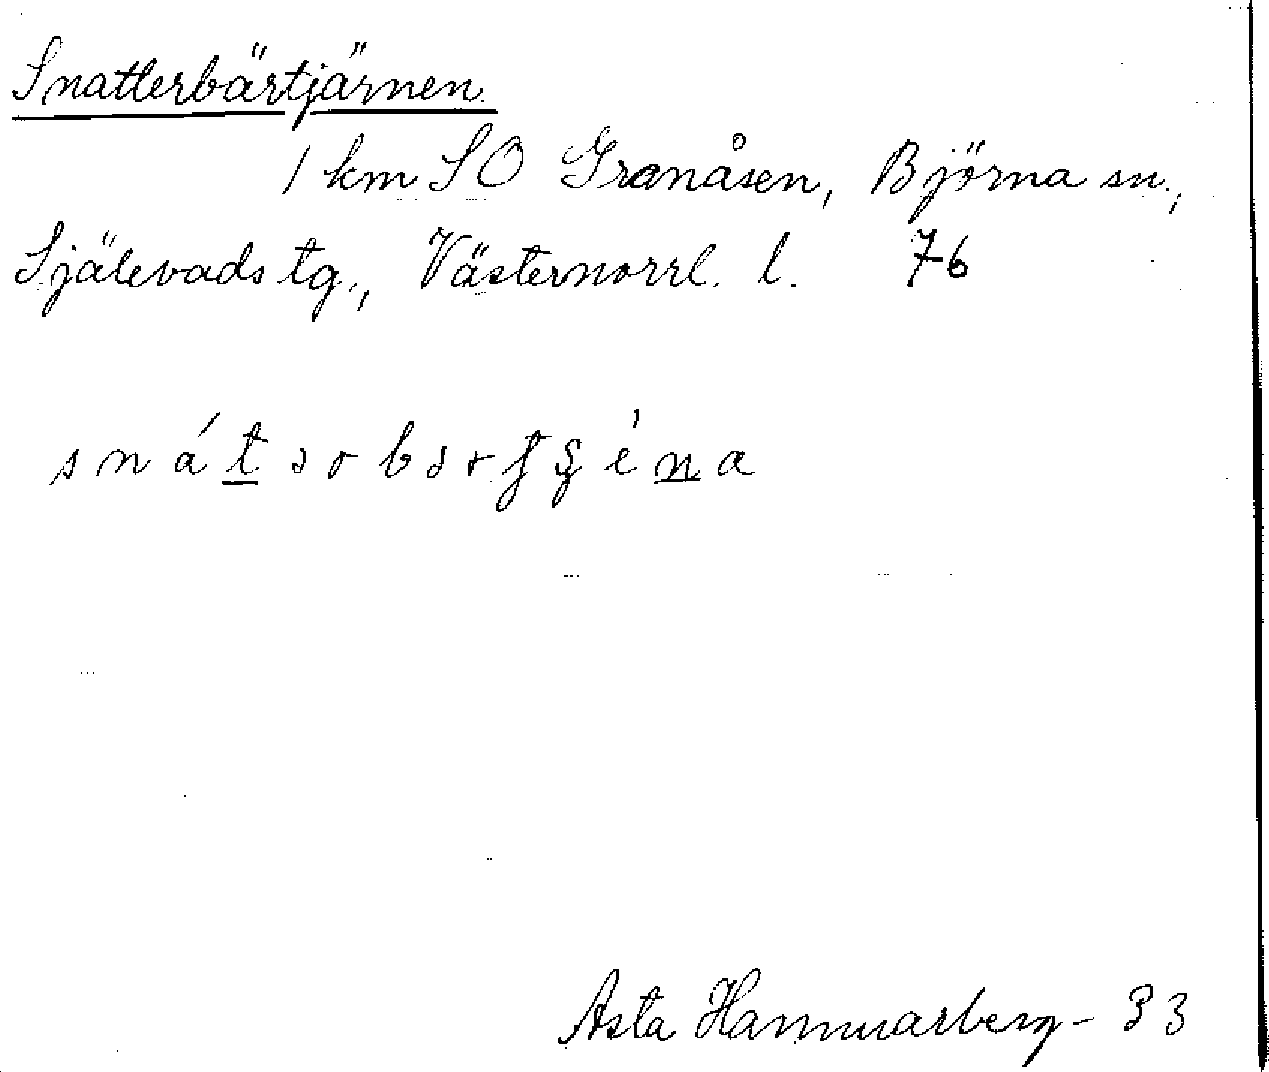 Snatterbärtjärnen.
1 km SO Granåsen, Björna sn.,
Själevads tg., Västernorrl. l. 76
Asta Hammarberg - 33